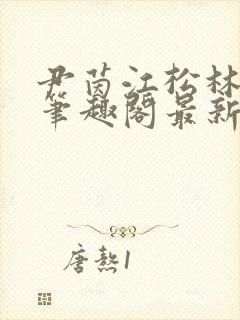 尹茵江松林
笔趣阁最新
唐熬1